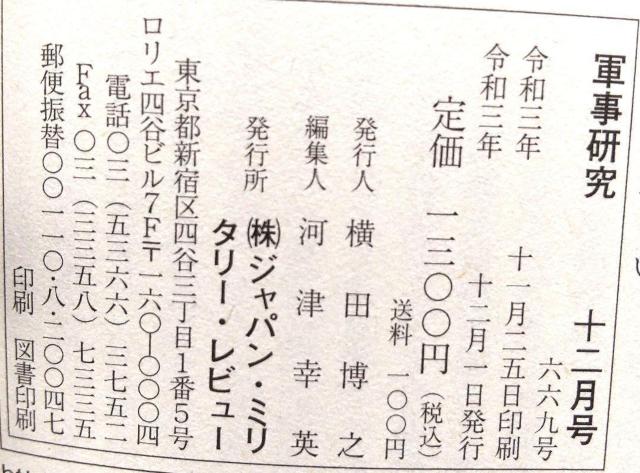 軍事研究　十二月号
六六九号
令和三年　十一月二五日印刷
令和三年　十二月一日発行
定価　一三〇〇円（税込）
送料　一〇〇円
発行人　横田博之
編集人　河津幸英
発行所　㈱ジャパン・ミリ
タリー・レビュー
東京都新宿区四谷三丁目1番5号
ロリエ四谷ビル7F〒一六〇―〇〇〇四
電話〇三（五三六六）三七五二
Fax〇三（三三五八）七三三五
郵便振替〇〇一一〇・八・二〇〇四七
印刷　図書印刷